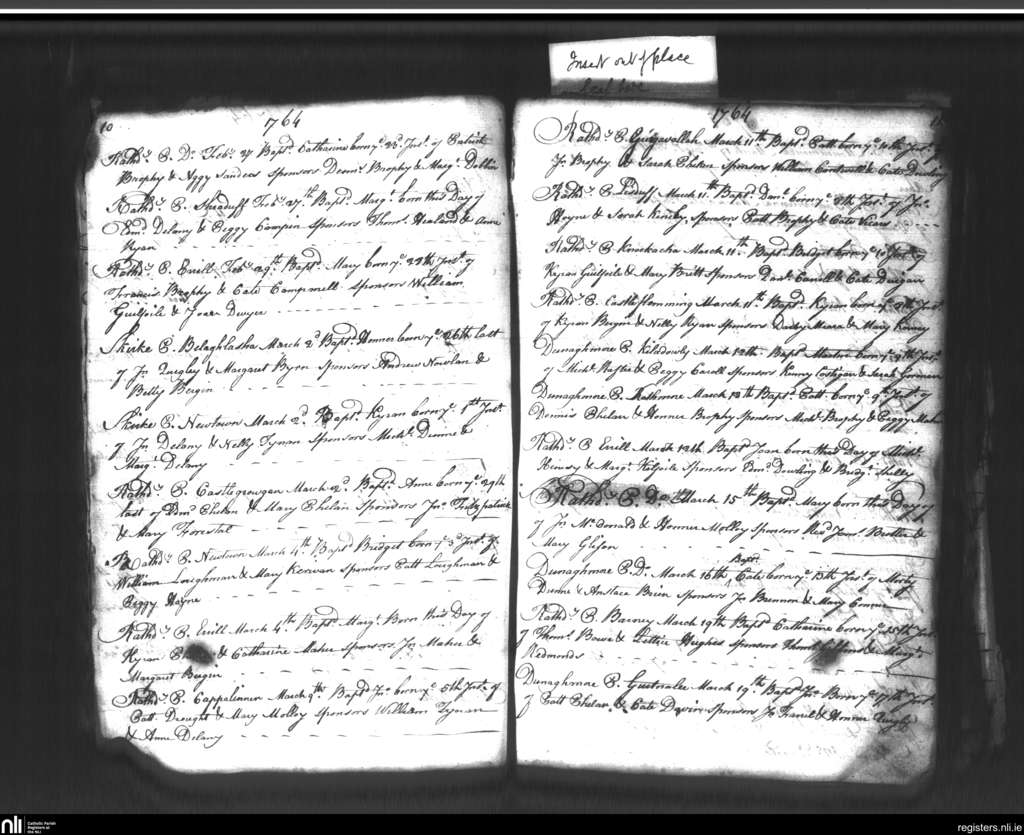 Insert out of place
10
1764
Rathd.y P. Do. Feb.y 27 Bapt.d Catharine born y.e 25 Inst. of Patrick
Brophy & Aggy Sanders Sponsors Dennis Brophy & Mary
Rathd.y P. Feb.y 27.th Bapt.d Marg.t born this Day of
Edm.d Delany & Peggy Campin Sponsors Thom.s & Anne
Ryan
Rathd.y P. Erill Feb.y 29.th Bapt.d Mary born y.e 27th Inst. of
Francis Brophy & Cate Sponsors William
Guilfoile & Joan Dwyer
Skirke P. Belaghlasha March 2.d Bapt.d Honner born y.e 26th last
of Jn. Quigley & Margaret Byrn Sponsors Andrew Nowlan &
Betty Bergin
Skirke P. Newtown March 2.d Bapt.d Kyran born y.e 1st Inst.
of Jn Delany & Nelly Tynan Sponsors Mich.l Dunne &
Marg.t Delany
Rathd.y P. Castlegrougan March 2.d Bapt.d Anne born y.e 29th
last of Edm.d Phelan & Mary Phelan Sponsors Jn. Fitzpatrick
& Mary Forrestal
Rathd.y P. Newtown March 4.th Bapt.d Bridget born y.e 3.d Inst. of
William Loughman & Mary Kerivan Sponsors Patt Loughman &
Peggy Hayne
Rathd.y P. Erill March 4.th Bapt.d Marg.t Born this Day of
Kyran & Catharine Maher Sponsors Jn Maher &
Margaret Bergin
Rathd.y P. Cappalinnan March 9.th Bapt.d Jn. born y.e 5th Inst. of
Patt Drought & Mary Molloy Sponsors William Tynan
& Anne Delany
1764
11
Rathd.y P. March 11.th Bapt.d Patt born y.e 10th Inst. of
Jn. Brophy & Sarah Phelan Sponsors William & Cate Dowling
Rathd.y P. Lisduff March 11.th Bapt.d Dan.l born y.e 8th Inst. of Jn.
Hoyne & Sarah Sponsors Patt Brophy & Cate Vicars
Rathd.y P. March 11.th Bapt.d Bridget born y.e 10 Inst. of
Kyran Guilfoile & Mary Britt Sponsors Dan.l Carroll & Cate Duigan
Rathd.y P. Castleflemming March 11.th Bapt.d Kyran born y.e Inst.
of Kyran & Nelly Ryan Sponsors Darby Meara & Mary Kenny
Dunaghmore P. Kilsdowly March 12th Bapt.d Martin born y.e 9th Inst.
of Mich.l Rafter & Peggy Caroll Sponsors Kenny Costigan & Sarah Gorman
Dunaghmore P. Rathmore March 13th Bapt.d Patt born y.e 9.th Inst. of
Dennis Phelan & Honner Brophy Sponsors Mich.l Brophy & Peggy Maher
Rathd.y P. Erill March 12th Bapt.d Joan born this Day of Mich.l
& Marg.t Sponsors Edm.d Dowling & Bridg.t
Rathd.y P. Do. March 15th Bapt.d Mary born this Day of
of Jn. McDonald & Honner Molloy Sponsors Rev.d Jam.s &
Mary Gleson
Bapt.
Dunaghmore P. Do. March 16th Cate born y.e 13th Inst. of Morty
Dunne & Anstace Brien Sponsors Jn Brennon & Mary
Rathd.y P. Barney March 19th Bapt.d Catharine born y.e 18th Inst.
of Thom.s Bowe & Lettice Hughes Sponsors Thom.s & Marg.t
Redmonds
Dunaghmore P. March 19.th Bapt.d Jn. Born y.e 17th Inst.
of Patt Phelan & Cate Sponsors Jn & Honner Quigly
nli
Catholic Parish
Registers at
the NLI
registers.nli.ie